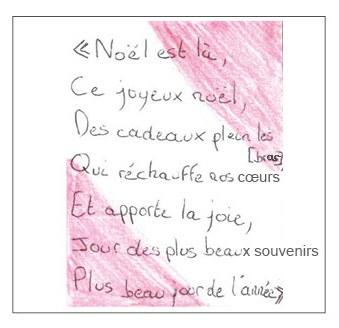 «Noël est là,
Ce joyeux noël,
Des cadeaux plein les
[bras]
Qui réchauffe nos cœurs
Et apporte la joie,
Jour des plus beaux souvenirs
Plus beau jour de l'année»